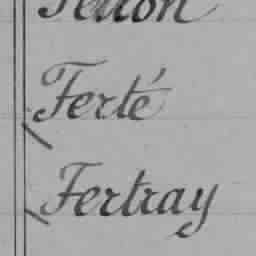 Ferté
Fertray